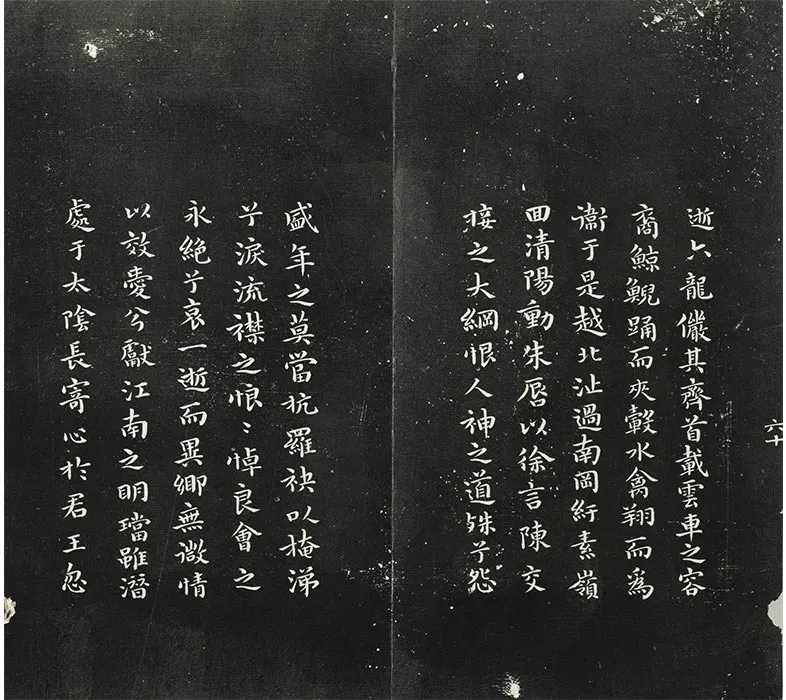 逝六龍儼其齊首載雲車之容
裔鯨鯢踊而夾轂水禽翔而為
衞于是越北沚過南岡紆素嶺
回清陽動朱唇以徐言陳交
接之大綱恨人神之道殊兮怨
盛年之莫當抗羅袂以掩涕
兮淚流襟之恨〻悼良會之
永絕兮哀一逝而異鄉無微情
以效愛兮獻江南之明璫雖潛
處于太陰長寄心於君王忽
六十